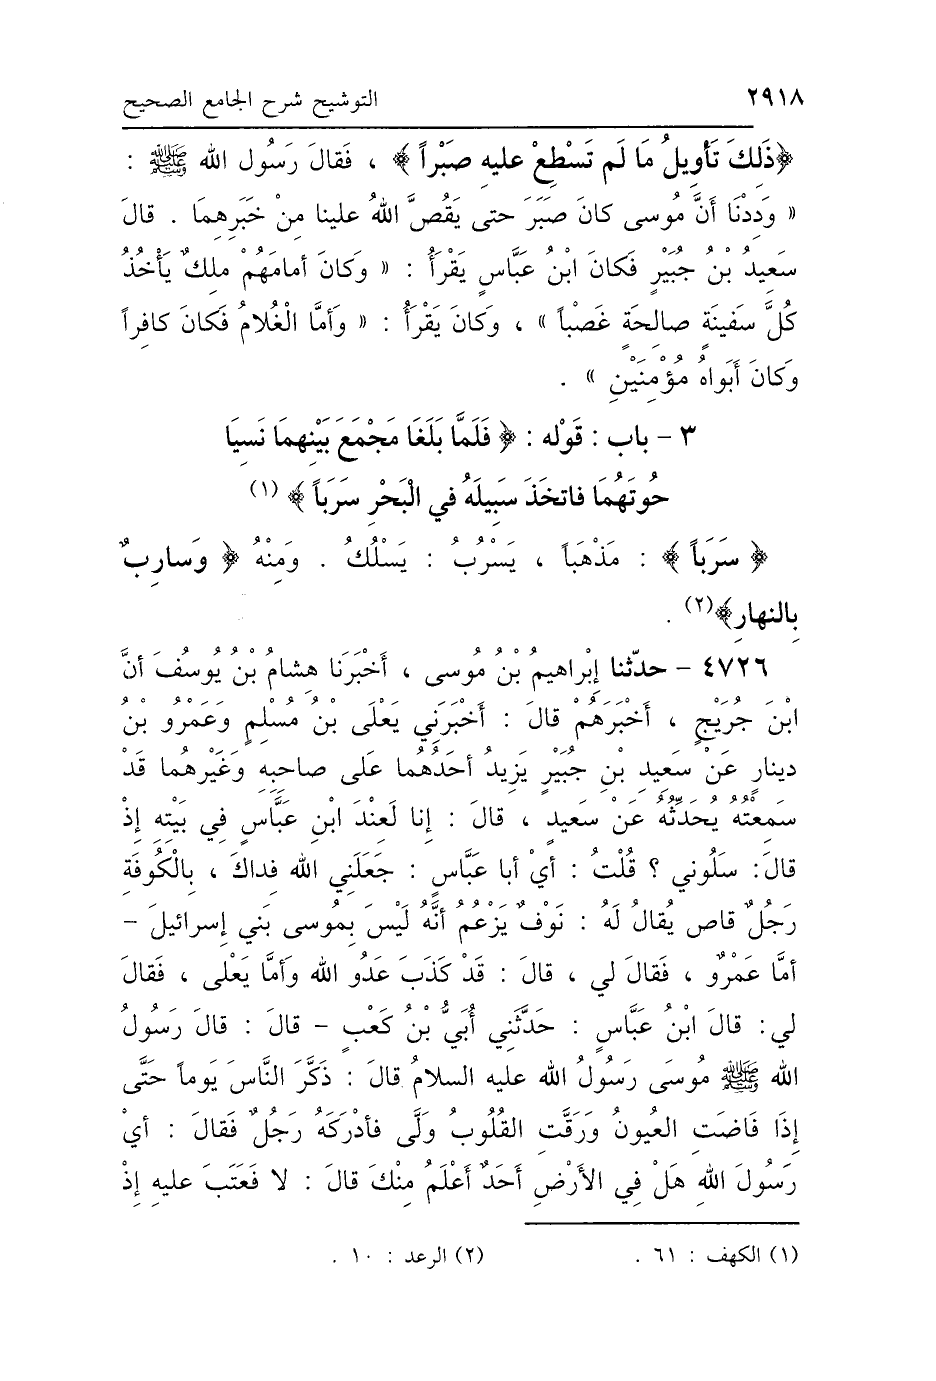 ٢٩١٨ التوشيح شرح الجامع الصحيح
﴿ذَلكَ تَأويلُ مَا لَم تَسْطِعْ عليهِ صبْراً﴾ ، فَقالَ رَسُول الله ﷺ :
« وَدِدْنَا أَنَّ مُوسى كانَ صَبَرَ حتى يَقُصَّ اللهُ علينا مِنْ خَبَرِهمَا . قالَ
سَعيدُ بْنُ جُبَيْرٍ فَكانَ ابْنُ عَبَّاسٍ يَقْرَأُ : « وَكانَ أمامَهُمْ ملكٌ يَأْخُذُ
كُلَّ سَفينَةٍ صالحَةٍ غَصْباً » ، وَكانَ يَقْرَأُ : « وأمَّا الْغُلامُ فَكانَ كافِراً
وَكانَ أَبَواهُ مُؤْمِنَيْنِ » .
٣ - باب : قَوْله : ﴿ فَلَمَّا بَلَغَا مَجْمَعَ بَيْنهِمَا نَسيَا
حُوتَهُمَا فاتخَذَ سَبِيلَهُ في الْبَحْرِ سَرَباً ﴾ (١)
﴿ سَرَباً ﴾ : مَذْهَباً ، يَسْرُبُ : يَسْلُكُ . وَمنْهُ ﴿ وَسارِبٌ
بِالنهارِ﴾(٢) .
٤٧٢٦ - حدّثنا إِبْراهيمُ بْنُ مُوسى ، أَخْبَرَنا هِشامُ بْن يُوسُفَ أنَّ
ابْنَ جُرَيْجٍ ، أَخْبَرَهُمْ قالَ : أَخْبَرَني يَعْلَى بْنُ مُسْلِمٍ وَعَمْرُو بْنُ
دينارٍ عَنْ سَعيدِ بْنِ جُبَيْرٍ يَزيدُ أحَدُهُما عَلى صاحِبِهِ وَغَيْرهُما قَدْ
سَمِعْتُهُ يُحَدِّثُهُ عَنْ سَعيدٍ ، قالَ : إنا لَعنْدَ ابْنِ عَبَّاسٍ في بَيْتِهِ إِذْ
قالَ: سَلُوني ؟ قُلْتُ : أيْ أبا عَبَّاسٍ : جَعَلَنِي الله فداكَ ، بِالْكُوفَةِ
رَجُلٌ قاص يُقالُ لَهُ : نَوْفٌ يَزْعُمُ أنَّهُ لَيْسَ بِموسى بَني إِسرائيلَ -
أمَّا عَمْرٌو ، فَقالَ لي ، قالَ : قَدْ كَذَبَ عَدُو الله وَأمَّا يَعْلى ، فَقالَ
لي: قالَ ابْنُ عَبَّاسٍ : حَدَّثَنِي أُبَيُّ بْنُ كَعْبٍ - قالَ : قالَ رَسُولُ
الله ﷺ مُوسَى رَسُولُ الله عليه السلامُ قالَ : ذَكَّرَ النَّاسَ يَوماً حَتَّى
إِذَا فَاضَتِ العُيونُ وَرَقَّتِ القُلُوبُ وَلَّى فأدْرَكَهُ رَجُلٌ فَقالَ : أيْ
رَسُولَ اللهِ هَلْ فِي الأَرْضِ أَحَدٌ أَعْلَمُ مِنْكَ قالَ : لا فَعَتَبَ عليهِ إِذْ
(١) الكهف : ٦١ . (٢) الرعد : ١٠ .